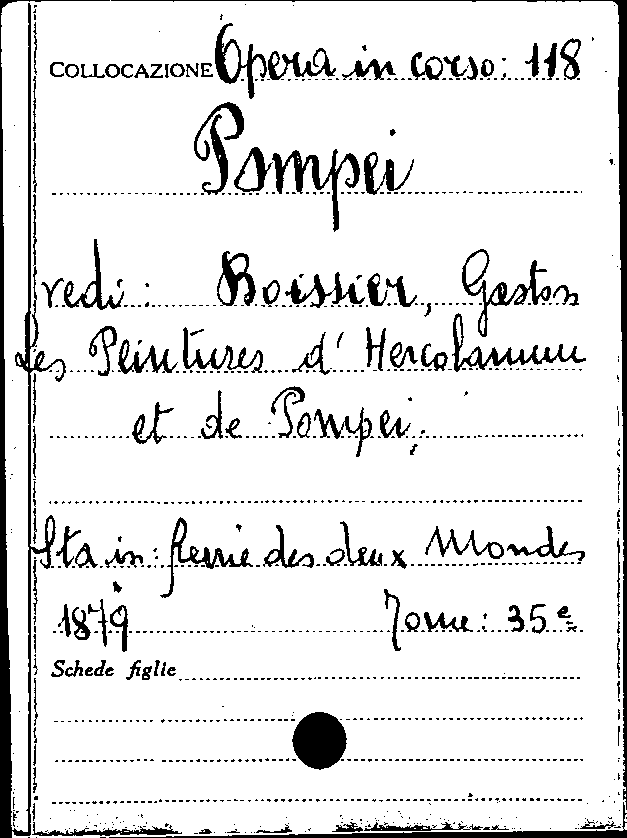 COLLOCAZIONE Opera in corso: 118
Pompei
vedi: Boissier, Gaston
Les Peintures d' Hercolanum
et de Pompei.
Sta in: Revue des deux Mondes
1879 Tome: 35e
Schede figlie